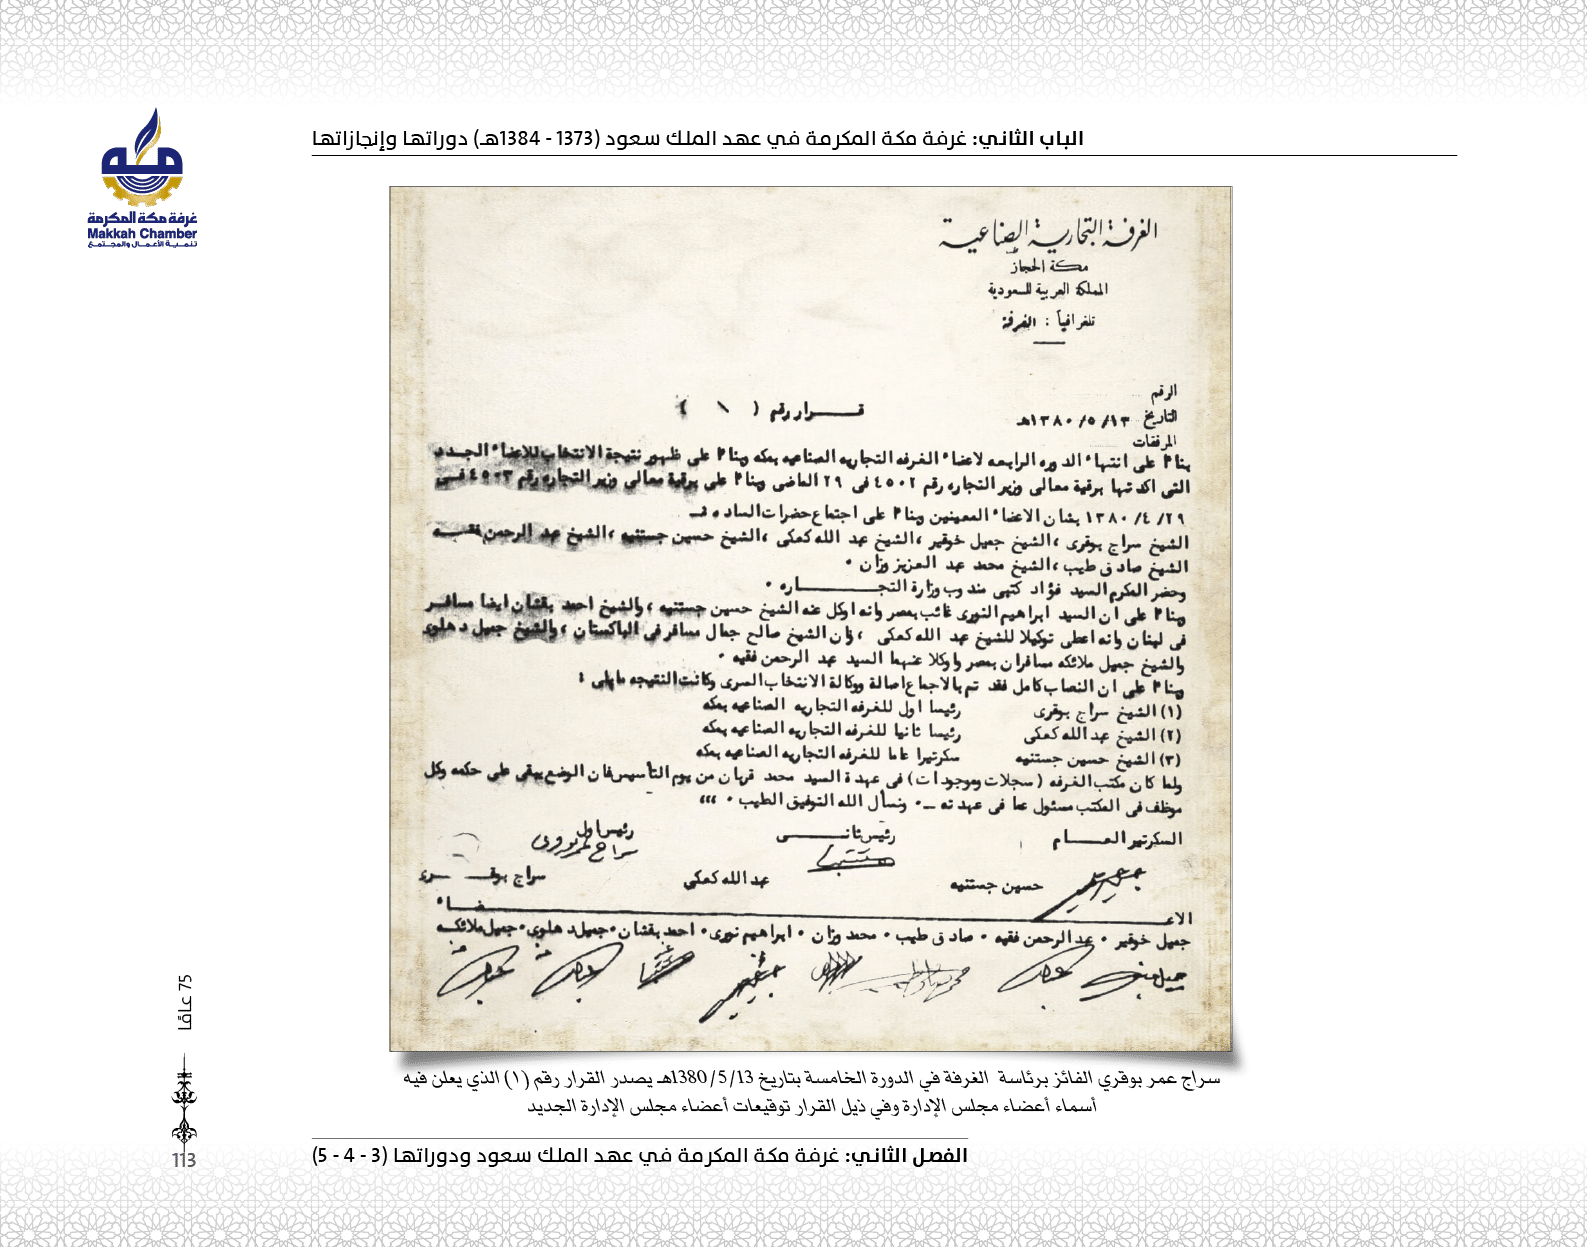 الباب الثاني: غرفة مكة المكرمة في عهد الملك سعود (1373 - 1384هـ) دوراتها وإنجازاتها
غرفة مكة المكرمة
Makkah Chamber
تنمية الأعمال والمجتمع
الغرفة التجارية الصناعية
مكة الحجاز
المملكة العربية السعودية
تلغرافياً : الغرفة
الرقم
التاريخ ١٣/ ٥/ ١٣٨٠هـ
المرفقات
قـــرار رقم ( ١ )
بناءً على انتهاء الدوره الرابعه لاعضاء الغرفه التجاريه الصناعيه بمكه وبناءً على ظهور نتيجة الانتخاب للاعضاء الجدد
التى اكدتها برقية معالى وزير التجاره رقم ٤٥٠٢ فى ٢٩ الماضى وبناءً على برقية معالى وزير التجاره رقم ٤٥٠٣ فـى
٢٩/ ٤/ ١٣٨٠ بشان الاعضاء المعينين وبناءً على اجتماع حضرات الساده
الشيخ سراج بوقرى ، الشيخ جميل خوقير ، الشيخ عبد الله كعكى ، الشيخ حسين جستنيه ، الشيخ عبد الرحمن فقيه
الشيخ صادق طيب ، الشيخ محمد عبد العزيز وزان .
وحضر المكرم السيد فؤاد كتبى مندوب وزارة التجـــاره .
وبناءً على ان السيد ابراهيم النورى غائب بمصر وانه اوكل عنه الشيخ حسين جستنيه ، والشيخ احمد بقشان ايضا مسافر
فى لبنان وانه اعطى توكيلا للشيخ عبد الله كعكى ، وان الشيخ صالح جمال مسافر فى الباكستان ، والشيخ جميل دهلوى
والشيخ جميل ملائكه مسافران بمصر واوكلا عنهما السيد عبد الرحمن فقيه .
وبناءً على ان النصاب كامل فقد تم بالاجماع اصالة ووكالة الانتخاب السرى وكانت النتيجه مايلى :
(١) الشيخ سراج بوقرى رئيسا اول للغرفه التجاريه الصناعيه بمكه
(٢) الشيخ عبد الله كعكى رئيسا ثانيا للغرفه التجاريه الصناعيه بمكه
(٣) الشيخ حسين جستنيه سكرتيرا عاما للغرفه التجاريه الصناعيه بمكه
ولما كان مكتب الغرفه (سجلات وموجودات) فى عهدة السيد محمد قربان من يوم التأسيس فان الوضع يبقى على حكمه وكل
موظف فى المكتب مسئول عما فى عهدته ــ . ونسأل الله التوفيق الطيب . ،،،
السكرتير العـــام رئيس ثانـــى رئيس اول
حسين جستنيه عبد الله كعكى سراج بوقـــرى
الاعـــضـــاء
جميل خوقير . عبد الرحمن فقيه . صادق طيب . محمد وزان . ابراهيم نورى . احمد بقشان . جميل دهلوى . جميل ملائكه
سراج عمر بوقري الفائز برئاسة الغرفة في الدورة الخامسة بتاريخ 1380/5/13هـ يصدر القرار رقم (١) الذي يعلن فيه
أسماء أعضاء مجلس الإدارة وفي ذيل القرار توقيعات أعضاء مجلس الإدارة الجديد
75 عامًا
113
الفصل الثاني: غرفة مكة المكرمة في عهد الملك سعود ودوراتها (3 - 4 - 5)